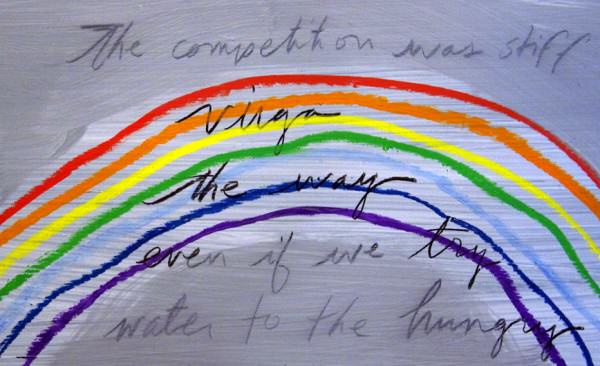 The competition was stiff
virga
the way
even if we try
water to the hungry